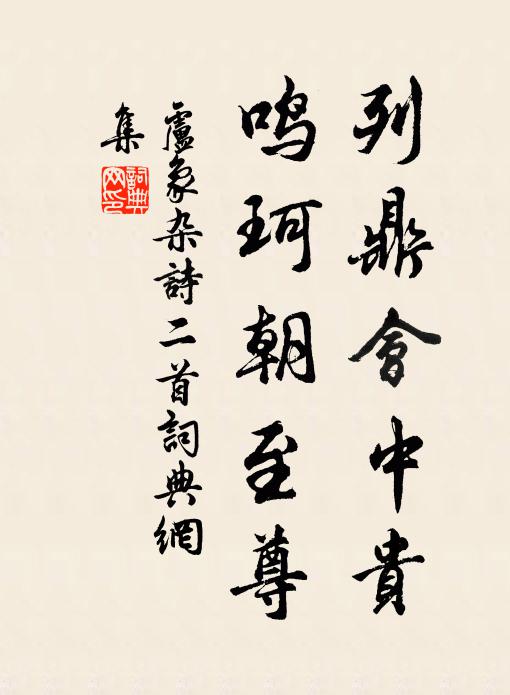 列鼎會中貴
鸣珂朝至尊
盧象杂詩二首詞典網
集
詞典
网印